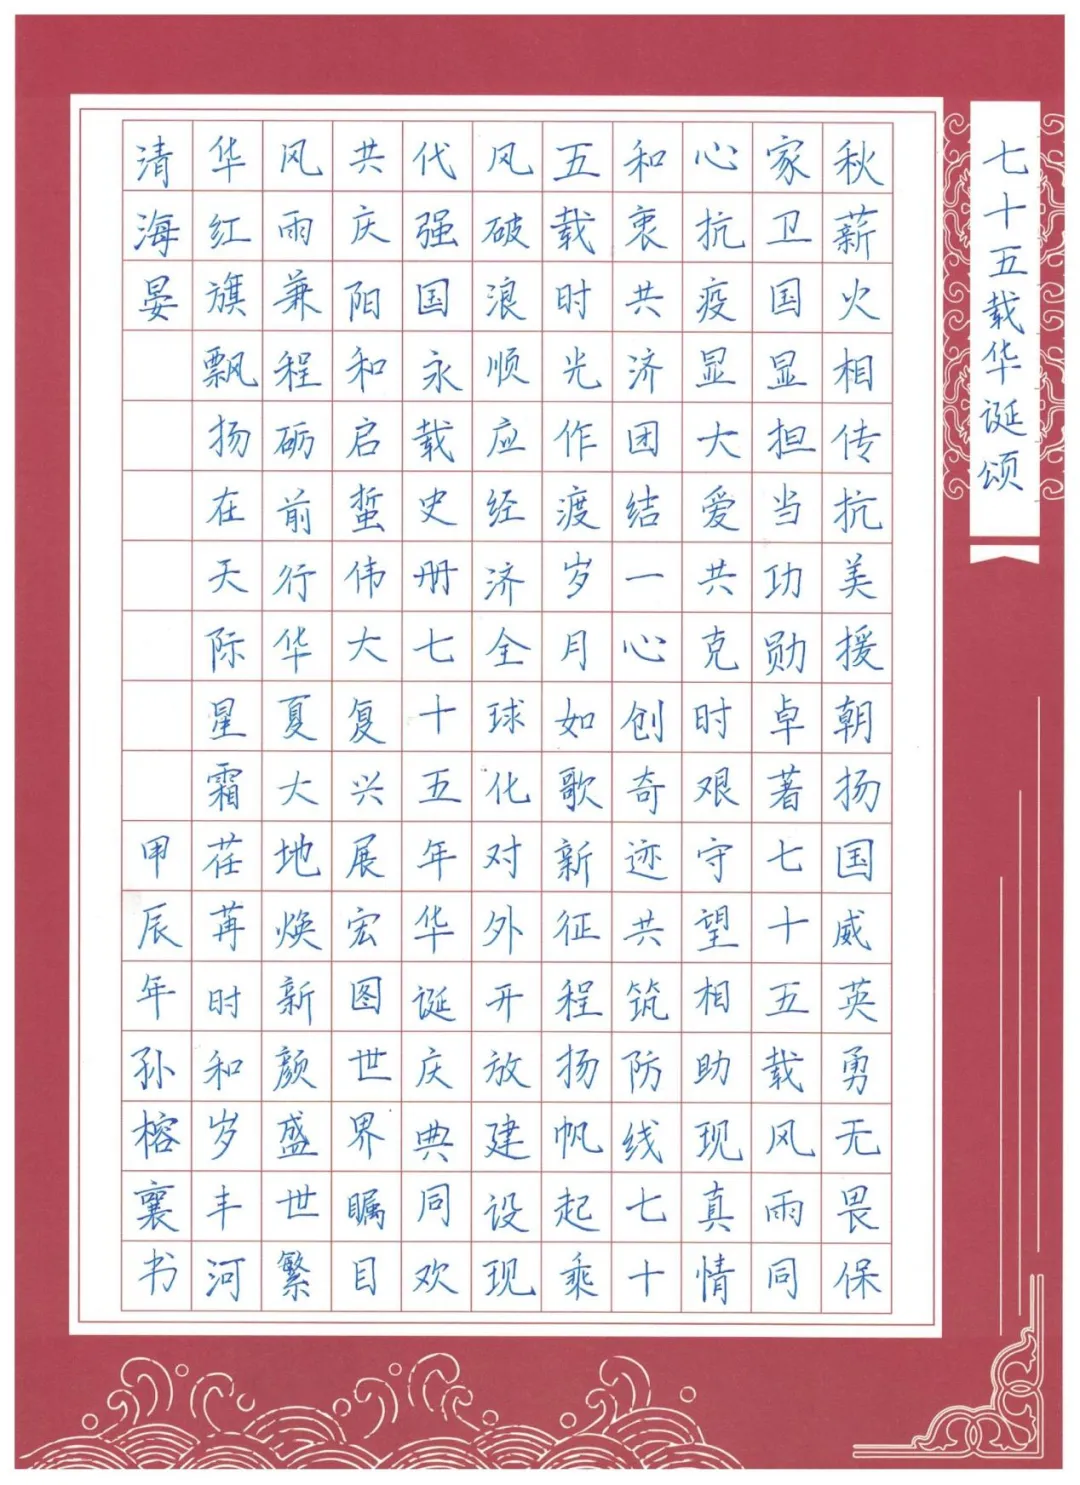 七十五载华诞颂
秋薪火相传抗美援朝扬国威英勇无畏保
家卫国显担当功勋卓著七十五载风雨同
心抗疫显大爱共克时艰守望相助现真情
和衷共济团结一心创奇迹共筑防线七十
五载时光作渡岁月如歌新征程扬帆起乘
风破浪顺应经济全球化对外开放建设现
代强国永载史册七十五年华诞庆典同欢
共庆阳和启蛰伟大复兴展宏图世界瞩目
风雨兼程砺前行华夏大地焕新颜盛世繁
华红旗飘扬在天际星霜荏苒时和岁丰河
清海晏
甲辰年孙榕襄书